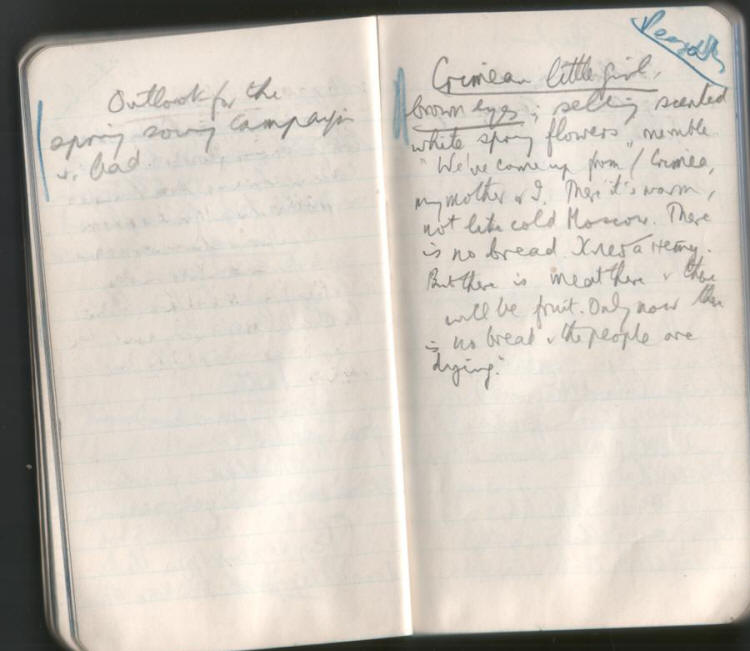 Outlook for the
spring sowing campaign
v. bad.
Crimean little girl,
brown eyes; selling scented
white spring flowers,
"We've come up from / Crimea,
my mother & I. There it's warm,
not like cold Moscow. There
is no bread. Хлеба нету.
But there is meat there & there
will be fruit. Only now there
is no bread & the people are
dying."